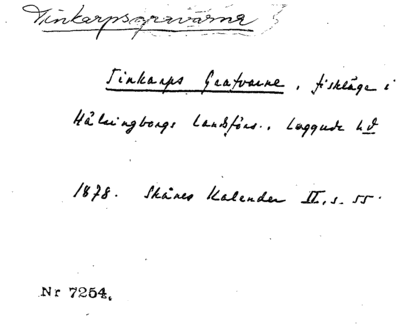 Tinkarpsgravarna
Tinkarps Grafvarne, fiskläge i
Hälsingborgs Landsförs., Luggude hd
1878. Skånes Kalender II, s. 55.
Nr 7254.